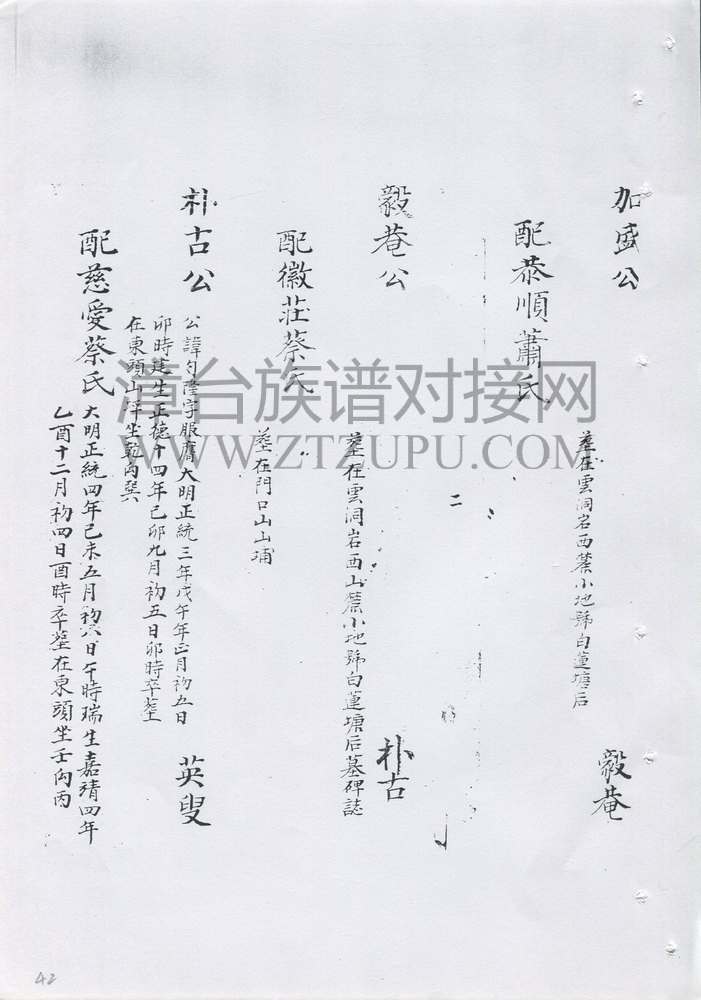 加盛公
配恭順蕭氏
墓在雲洞岩西麓小地號白蓮塘后
毅菴
毅菴公
配徽莊蔡氏
墓在雲洞岩西山麓小地號白蓮塘后墓碑誌
墓在門口山山埔
朴古
朴古公
公諱 隆字服膺大明正統三年戊午年正月初五日
卯時建生正德十四年己卯九月初五日卯時卒墓
在東頭山 坐乾向巽
英叟
配慈愛蔡氏
大明正統四年己未五月初六日午時瑞生嘉靖四年
乙酉十二月初四日酉時卒墓在東頭坐壬向丙
漳台族谱对接网
WWW.ZTZUPU.COM
42